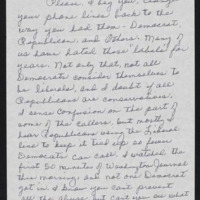 Please, I beg you, change
your phone lines back to the
way you had them - Democrat,
Republican, and Others. Many of
us have hated those labels for
years. Not only that, not all
Democrats consider themselves to
be liberals, and I doubt if all
Republicans are conservatives.
I sense confusion on the part
of some of the callers, but mostly I
hear Republicans using the Liberal
line to keep it tied up so fewer
Democrats can call. I watched the
first 50 minutes of Washington Journal
this morning, and not one Democrat
got in. I know you can't prevent
all the abuse, but can't you see what